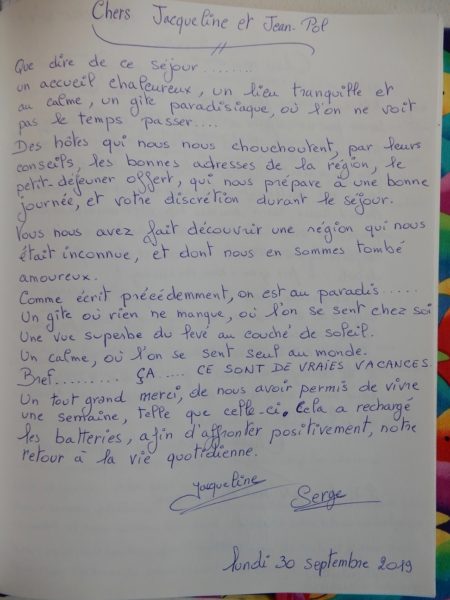 Chers Jacqueline et Jean-Pol
Que dire de ce séjour........
un accueil chaleureux, un lieu tranquille et
au calme, un gite paradisiaque, où l'on ne voit
pas le temps passer....
Des hôtes qui nous nous chouchoutent, par leurs
conseils, les bonnes adresses de la région, le
petit-déjeuner offert, qui nous prépare à une bonne
journée, et votre discrétion durant le séjour.
Vous nous avez fait découvrir une région qui nous
était inconnue, et dont nous en sommes tombé
amoureux.
Comme écrit précédemment, on est au paradis.....
Un gîte où rien ne manque, où l'on se sent chez soi
Une vue superbe du levé au couché de soleil.
Un calme, où l'on se sent seul au monde.
Bref......... ÇA..... CE SONT DE VRAIES VACANCES
Un tout grand merci, de nous avoir permis de vivre
une semaine, telle que celle-ci. Cela a rechargé
les batteries, afin d'affronter positivement, notre
retour à la vie quotidienne.
Jacqueline
Serge
lundi 30 septembre 2019